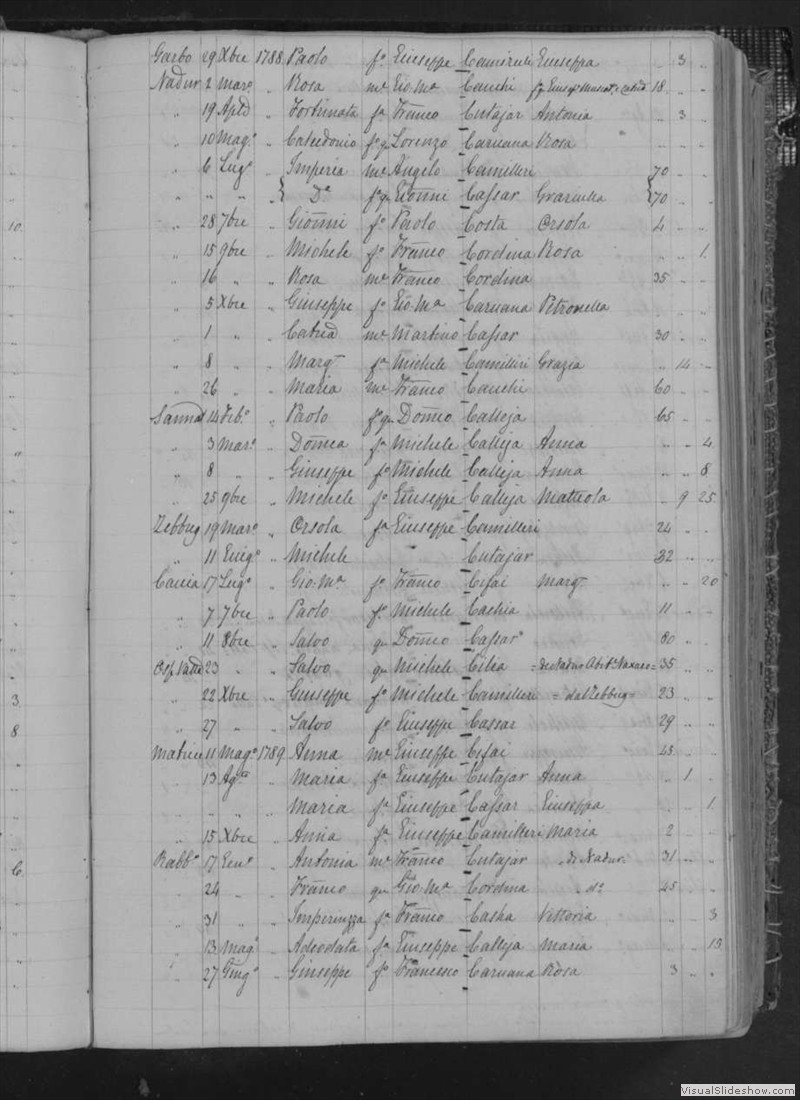 10.
3
8
6.
Garbo 29 Xbre 1788 Paolo fo Giuseppe Camirule Giuseppa .. 3 ..
Nadur 2 Maro .. Rosa me Gio. Ma Cauchi 18 .. ..
.. 19 Aple .. Fortunata fa Franco Cutajar Antonia .. 3 ..
.. 10 Mago .. Calcedonio fo q Lorenzo Caruana Rosa .. .. ..
.. 6 Lugo .. Imperia me Angelo Camilleri 70 .. ..
.. .. .. .. { Da fa q Gionni Cassar Graziulla { 70 .. ..
.. 28 7bre .. Gionni fo Paolo Costa Orsola 4 .. ..
.. 15 9bre .. Michele fo Franco Cordina Rosa .. .. 1.
.. 16 .. .. Rosa me Franco Cordina 35 .. ..
.. 5 Xbre .. Giuseppe fo Gio. Ma Caruana Petronella .. .. ..
.. 1 .. .. Catrid me Martino Cassar 30 .. ..
.. 8 .. .. Margta fa Michele Camilleri Grazia .. 14 ..
.. 26 .. .. Maria me Franco Cauchi 60 .. ..
Sannat 14 Febo .. Paolo fo qu Domco Calleja 65 .. ..
.. 3 Maro .. Domca fa Michele Calleja Anna .. .. 4
.. 8 .. .. Giuseppe fo Michele Calleja Anna .. .. 8
.. 25 9bre .. Michele fo Giuseppe Calleja Matteola .. 9 25
Zebbug 19 Maro .. Orsola fa Giuseppe Camilleri 24 .. ..
.. 11 Giugo .. Michele .. Cutajar 32 .. ..
Caccia 17 Lugo .. Gio. Ma fo Franco Cisai Margta .. .. 20
.. 7 7bre .. Paolo fo Michele Cachia 11 .. ..
.. 11 8bre .. Salvo qu Domco Cassar 80 .. ..
23 .. .. Salvo qu Michele Cilia 35 .. ..
.. 22 Xbre .. Giuseppe fo Michele Camilleri = dal Zebbug = 23 .. ..
.. 27 .. .. Salvo fo Giuseppe Cassar 29 .. ..
Matrice 11 Mago 1789 Anna me Giuseppe Cisai 45 .. ..
.. 13 Agto .. Maria fa Giuseppe Cutajar Anna .. 1 ..
.. .. .. Maria fa Giuseppe Cassar Giuseppa .. .. 1.
.. 15 Xbre .. Anna fa Giuseppe Camilleri Maria 2 .. ..
Rabbo 17 Geno .. Antonia me Franco Cutajar .. di Nadur 31 .. ..
24 .. .. Franco qu Gio. Ma Cordina .. do 45 .. ..
.. 31 .. .. Imperiuzza fa Franco Casha Vittoria .. .. 3
.. 13 Mago .. Adeodata fa Giuseppe Calleja Maria .. .. 15
.. 27 Giugo .. Giuseppe fo Francesco Caruana Rosa 3 .. ..
VisualSlideshow.com